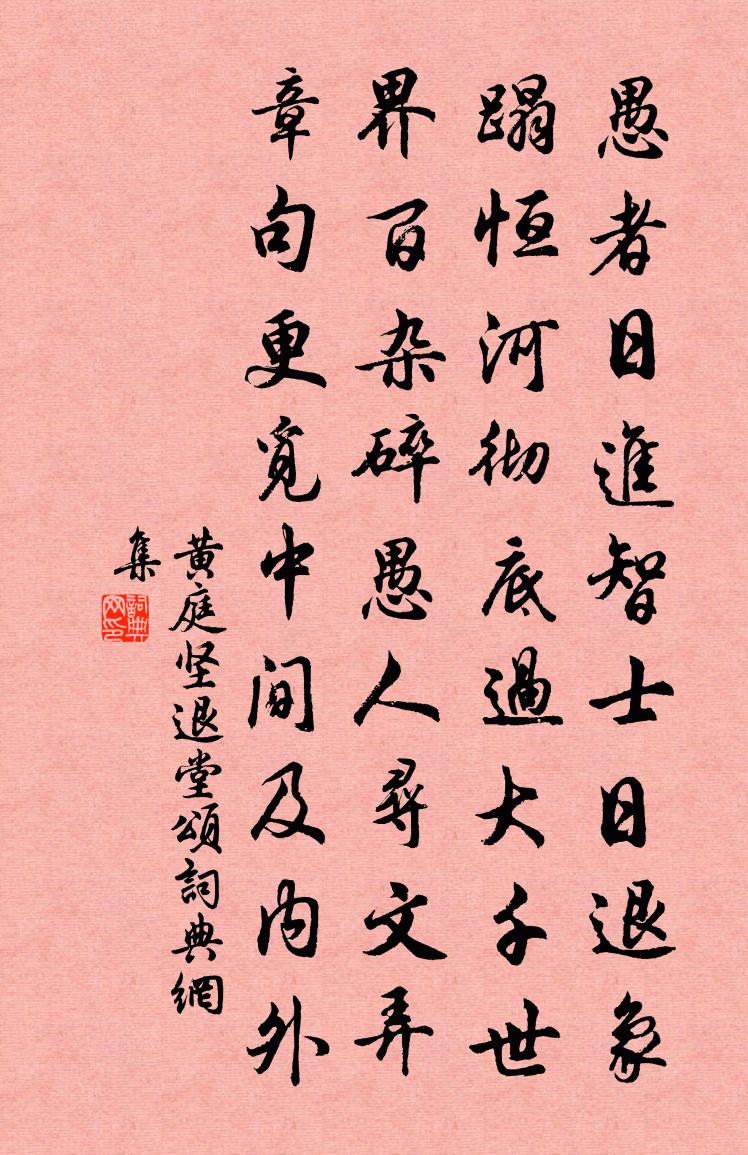 愚者日進智士日退象
蹋恒河彻底過大千世
界百杂碎愚人尋文弄
章句更覓中间及内外
黄庭坚退堂頌詞典網
集
詞典
网印